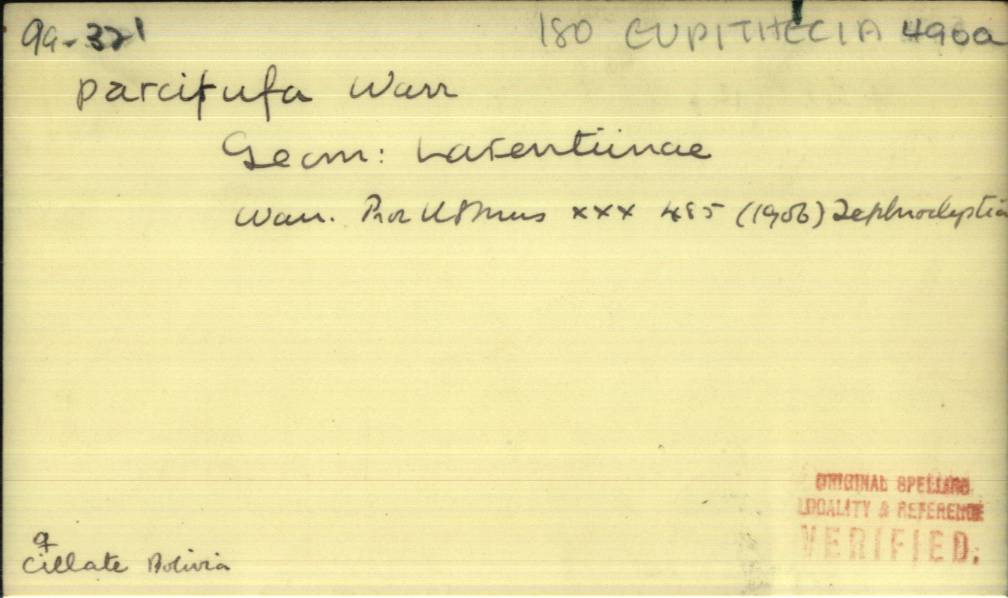 99-321 180 EUPITHECIA 490a
parcirufa Warr
Geom: Larentiinae
Warr. Proc US Mus xxx 485 (1906) Tephroclystia
ORIGINAL SPELLING
LOCALITY & REFERENCE
VERIFIED.
Cillate Bolivia